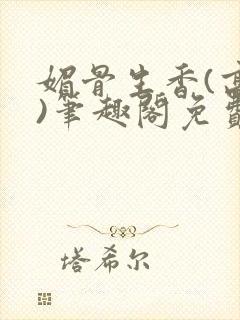 媚骨生香(
)笔趣阁免费
塔希尔